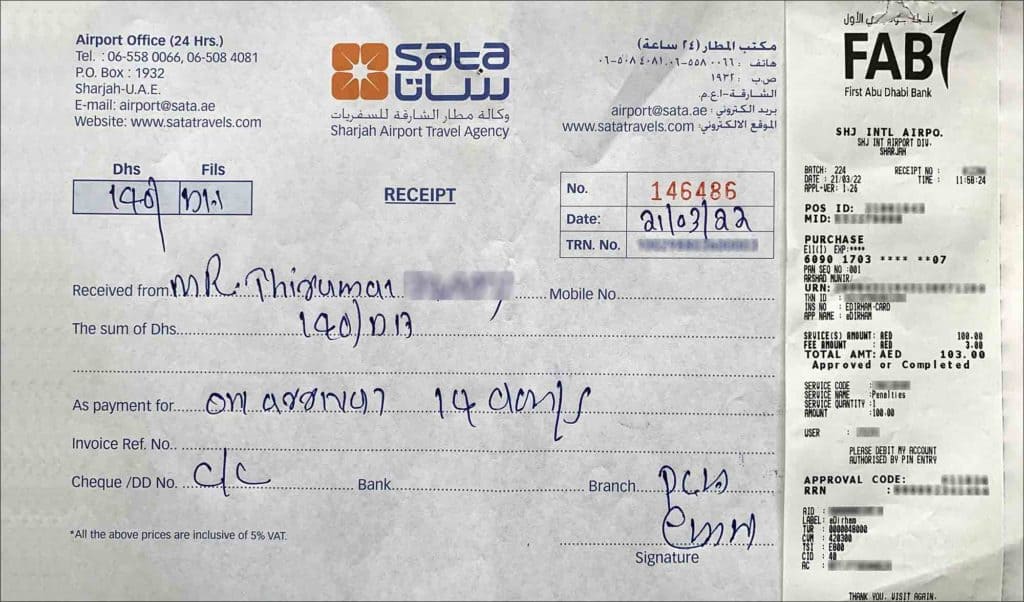 Airport Office (24 Hrs.)
Tel. : 06-558 0066, 06-508 4081
P.O. Box : 1932
Sharjah-U.A.E.
E-mail: airport@sata.ae
Website: www.satatravels.com
sata
ساتا
وكالة مطار الشارقة للسفريات
Sharjah Airport Travel Agency
مكتب المطار (٢٤ ساعة)
هاتف : ٠٦-٥٥٨ ٠٠٦٦، ٠٦-٥٠٨ ٤٠٨١
ص.ب : ١٩٣٢
الشارقة-ا.ع.م.
بريد الكتروني: airport@sata.ae
الموقع الالكتروني: www.satatravels.com
Dhs Fils
140/
RECEIPT
No. 146486
Date: 21/03/22
TRN. No.
Received from MR. Thirumar Mobile No.
The sum of Dhs. 140/
As payment for on arrival 14 days
Invoice Ref. No..
Cheque /DD No. c/c Bank Branch
*All the above prices are inclusive of 5% VAT.
Signature
الأول
FAB
First Abu Dhabi Bank
SHJ INTL AIRPO.
SHJ INT AIRPORT DIV.
SHARJAH
BATCH: 224 RECEIPT NO :
DATE : 21/03/22 TIME : 11:58:24
APPL-VER: 1.26
POS ID:
MID:
PURCHASE
EXP:****
6090 1703 **** **07
PAN SEQ NO :001
ARSHAD MUNIR/
URN:
TXN ID :
INS NO : EDIRHAM-CARD
APP NAME : eDIRHAM
SRVICE(S) AMOUNT: AED 100.00
FEE AMOUNT : AED 3.00
TOTAL AMT: AED 103.00
Approved or Completed
SERVICE CODE :
SERVICE NAME :Penalties
SERVICE QUANTITY :1
AMOUNT :100.00
USER :
PLEASE DEBIT MY ACCOUNT
AUTHORISED BY PIN ENTRY
APPROVAL CODE:
RRN :
AID :
LABEL: eDirham
TVR : 0000048000
CVM : 420300
TSI : E800
CID : 40
AC :
THANK YOU. VISIT AGAIN.